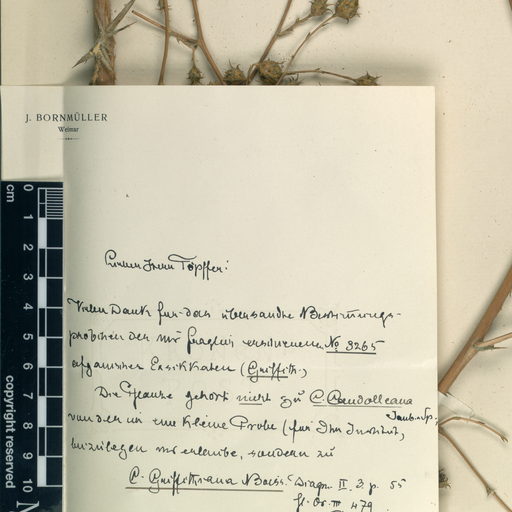 J. BORNMÜLLER
Weimar
cm
0
1
2
3
4
5
6
7
8
9
10
copyright reserved
Töpffer!
Vielen Dank für das übersandte Bestimmungs-
der mir No 3265
afganischen Exsikkaten (Griffith.)
Die Pflanze gehört nicht zu C. Candolleana
von der ich eine kleine Probe (für Ihr Institut,
beizulegen mir erlaube, sondern zu
C. Griffithiana Boiss. Diagn. II. 3. p. 55
fl. Or. III 479